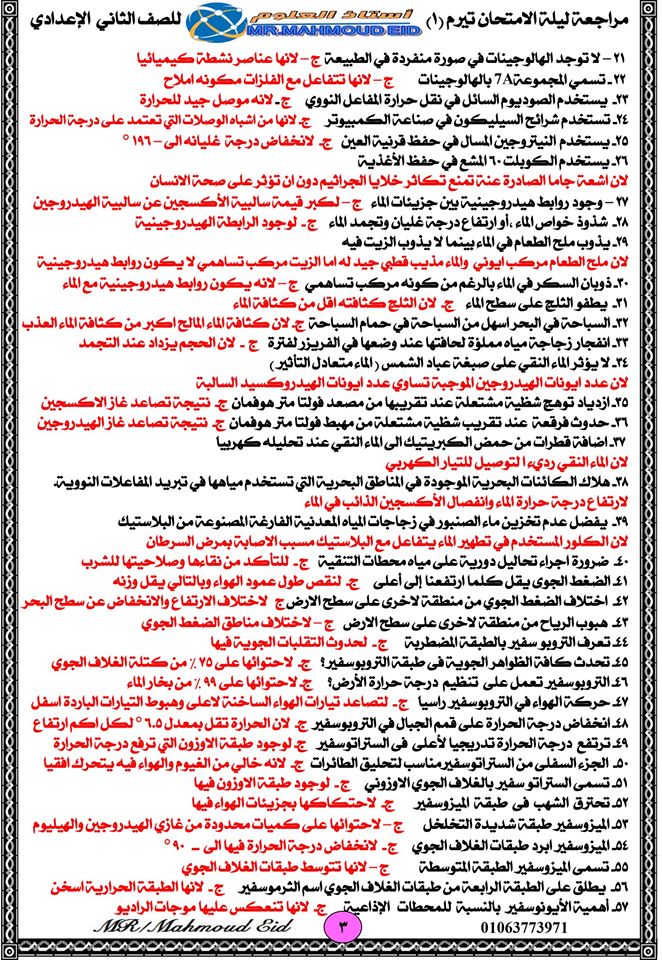 مراجعة ليلة الامتحان تيرم (١) أستاذ العلوم MR.MAHMOUD EID للصف الثاني الإعدادي
٢١ – لا توجد الهالوجينات في صورة منفردة في الطبيعة ج – لانها عناصر نشطة كيميائيا
٢٢ ـ تسمي المجموعة 7A بالهالوجينات ج – لانها تتفاعل مع الفلزات مكونه املاح
٢٣ـ يستخدم الصوديوم السائل في نقل حرارة المفاعل النووي ج ـ لانه موصل جيد للحرارة
٢٤ـ تستخدم شرائح السيليكون في صناعة الكمبيوتر ج ـ لانها من اشباه الوصلات التي تعتمد على درجة الحرارة
٢٥ـ يستخدم النيتروجين المسال في حفظ قرنية العين ج ـ لانخفاض درجة غليانه الى – ١٩٦ °
٢٦ـ يستخدم الكوبلت ٦٠ المشع في حفظ الأغذية
لان اشعة جاما الصادرة عنة تمنع تكاثر خلايا الجراثيم دون ان تؤثر على صحة الانسان
٢٧ – وجود روابط هيدروجينية بين جزيئات الماء ج – لكبر قيمة سالبية الأكسجين عن سالبية الهيدروجين
٢٨ـ شذوذ خواص الماء ،أو ارتفاع درجة غليان وتجمد الماء ج ـ لوجود الرابطة الهيدروجينية
٢٩ـ يذوب ملح الطعام في الماء بينما لا يذوب الزيت فيه
لان ملح الطعام مركب ايوني والماء مذيب قطبي جيد له اما الزيت مركب تساهمي لا يكون روابط هيدروجينية
٣٠ـ ذوبان السكر في الماء بالرغم من كونه مركب تساهمي ج – لانه يكون روابط هيدروجينية مع الماء
٣١ـ يطفو الثلج على سطح الماء ج ـ لان الثلج كثافته اقل من كثافة الماء
٣٢ـ السباحة في البحر اسهل من السباحة في حمام السباحة ج ـ لان كثافة الماء المالح اكبر من كثافة الماء العذب
٣٣ـ انفجار زجاجة مياه مملؤة لحافتها عند وضعها في الفريزر لفترة ج - لان الحجم يزداد عند التجمد
٣٤ـ لا يؤثر الماء النقي على صبغة عباد الشمس (الماء متعادل التأثير)
لان عدد ايونات الهيدروجين الموجبة تساوي عدد ايونات الهيدروكسيد السالبة
٣٥ـ ازدياد توهج شظية مشتعلة عند تقريبها من مصعد فولتا متر هوفمان ج ـ نتيجة تصاعد غاز الاكسجين
٣٦ـ حدوث فرقعة عند تقريب شظية مشتعلة من مهبط فولتا متر هوفمان ج ـ نتيجة تصاعد غاز الهيدروجين
٣٧ـ اضافة قطرات من حمض الكبريتيك الى الماء النقي عند تحليله كهربيا
لان الماء النقي رديء التوصيل للتيار الكهربي
٣٨ـ هلاك الكائنات البحرية الموجودة في المناطق البحرية التي تستخدم مياهها في تبريد المفاعلات النووية.
لارتفاع درجة حرارة الماء وانفصال الأكسجين الذائب في الماء
٣٩ـ يفضل عدم تخزين ماء الصنبور في زجاجات المياه المعدنية الفارغة المصنوعة من البلاستيك
لان الكلور المستخدم في تطهير الماء يتفاعل مع البلاستيك مسبب الاصابة بمرض السرطان
٤٠ـ ضرورة اجراء تحاليل دورية على مياه محطات التنقية ج ـ للتأكد من نقاءها وصلاحيتها للشرب
٤١ـ الضغط الجوى يقل كلما ارتفعنا إلى أعلى ج ـ لنقص طول عمود الهواء وبالتالي يقل وزنه
٤٢ـ اختلاف الضغط الجوي من منطقة لاخرى على سطح الارض ج لاختلاف الارتفاع والانخفاض عن سطح البحر
٤٣ـ هبوب الرياح من منطقة لاخرى على سطح الارض ج – لاختلاف مناطق الضغط الجوي
٤٤ـ تعرف التروبو سفير بالطبقة المضطربة ج ـ لحدوث التقلبات الجوية فيها
٤٥ـ تحدث كافة الظواهر الجوية في طبقة التروبوسفير؟ ج ـ لاحتوائها على ٧٥ ٪ من كتلة الغلاف الجوي
٤٦ـ التروبوسفير تعمل على تنظيم درجة حرارة الأرض؟ ج ـ لاحتوائها على ٩٩ ٪ من بخار الماء
٤٧ـ حركة الهواء في التروبوسفير راسيا ج ـ لتصاعد تيارات الهواء الساخنة لاعلى وهبوط التيارات الباردة اسفل
٤٨ـ انخفاض درجة الحرارة على قمم الجبال في التروبوسفير ج ـ لان الحرارة تقل بمعدل ٦.٥ ° لكل اكم ارتفاع
٤٩ـ ترتفع درجة الحرارة تدريجيا لأعلى في الستراتوسفير ج ـ لوجود طبقة الاوزون التي ترفع درجة الحرارة
٥٠ـ الجزء السفلى من الستراتوسفير مناسب لتحليق الطائرات ج ـ لانه خالي من الغيوم والهواء فيه يتحرك افقيا
٥١ـ تسمى الستراتو سفير بالغلاف الجوي الاوزوني ج ـ لوجود طبقة الاوزون فيها
٥٢ـ تحترق الشهب في طبقة الميزوسفير ج ـ لاحتكاكها بجزيئات الهواء فيها
٥٣ـ الميزوسفير طبقة شديدة التخلخل ج – لاحتوائها على كميات محدودة من غازي الهيدروجين والهيليوم
٥٤ـ الميزوسفير ابرد طبقات الغلاف الجوي ج ـ لانخفاض درجة الحرارة فيها الى – ٩٠ °
٥٥ـ تسمى الميزوسفير الطبقة المتوسطة ج – لانها تتوسط طبقات الغلاف الجوي
٥٦ـ يطلق على الطبقة الرابعة من طبقات الغلاف الجوي اسم الثرموسفير ج ـ لانها الطبقة الحرارية اسخن
٥٧ـ أهمية الأيونوسفير بالنسبة للمحطات الإذاعية ج ـ لانها تنعكس عليها موجات الراديو
MR/Mahmoud Eid ٣ 01063773971